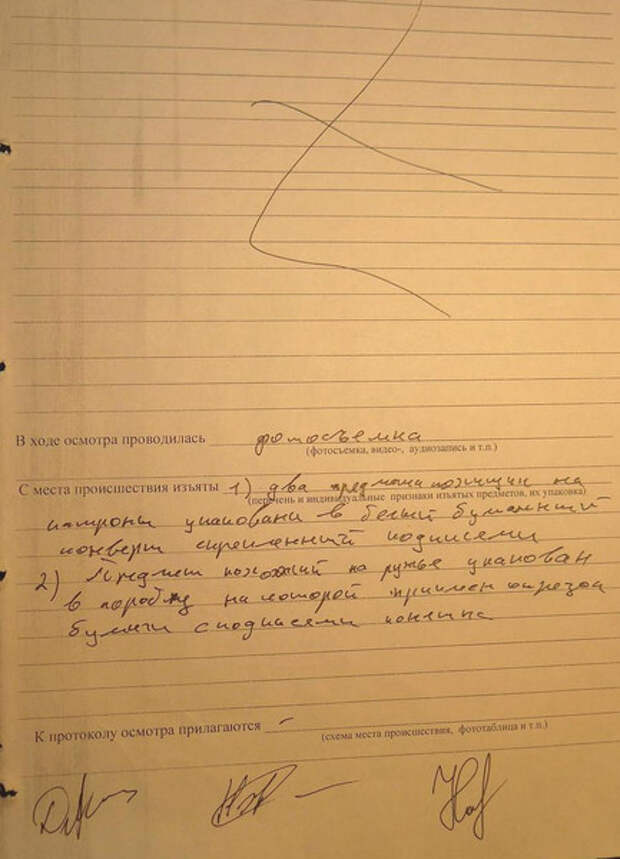 В ходе осмотра проводилась фотосъемка
(фотосъемка, видео-, аудиозапись и т.п.)
С места происшествия изъяты 1) два предмета похищих на
(перечень и индивидуальные признаки изъятых предметов, их упаковка)
патроны упакованы в белый бумажный
конверт скрепленный подписями
2) Предмет похожий на ружье упакован
в коробку на которой отрезок
бумаги с подписями
К протоколу осмотра прилагаются –
(схема места происшествия, фототаблица и т.п.)